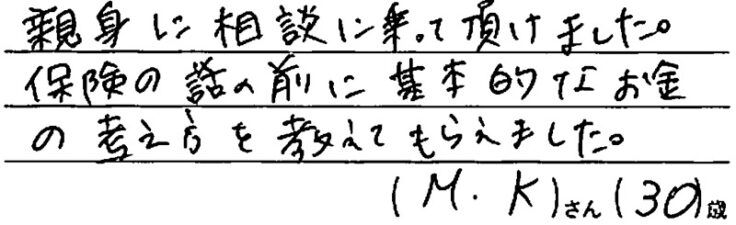 親身に相談に乗って頂けました。
保険の話の前に基本的なお金
の考え方を教えてもらえました。
(M.K)さん(30)歳